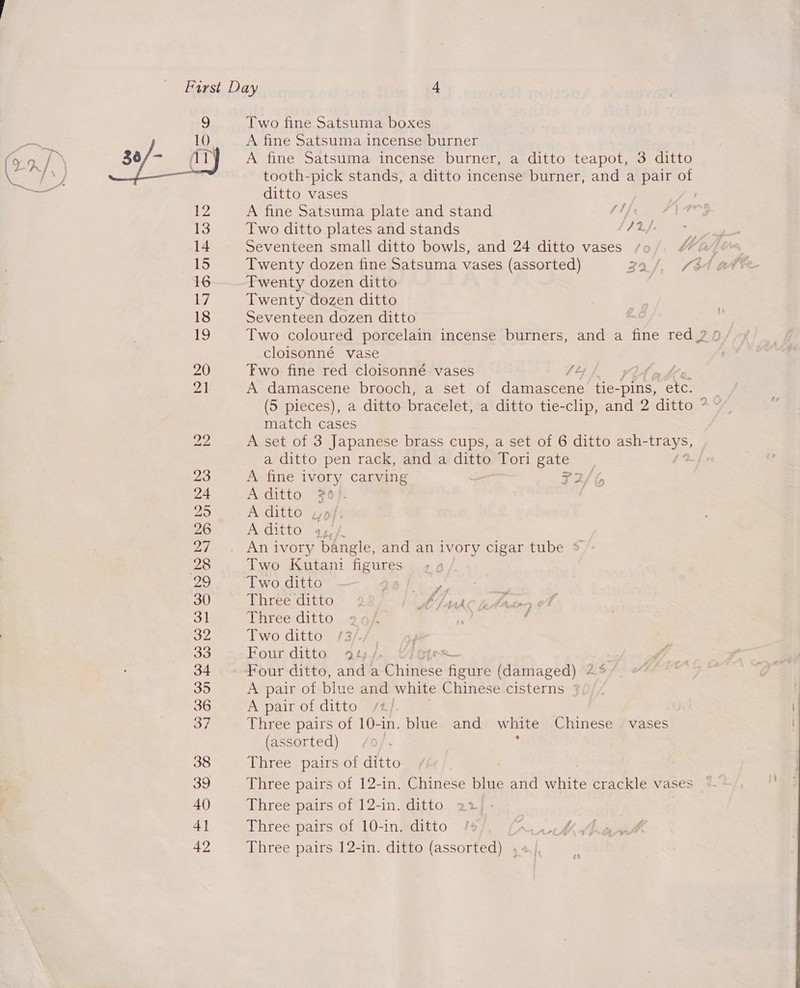 First Day 4
9 Two fine Satsuma boxes
10 A fine Satsuma incense burner
30/- 11 A fine Satsuma incense burner, a ditto teapot, 3 ditto
tooth-pick stands, a ditto incense burner, and a pair of
ditto vases
12 A fine Satsuma plate and stand
13 Two ditto plates and stands 12/-
14 Seventeen small ditto bowls, and 24 ditto vases
15 Twenty dozen fine Satsuma vases (assorted) 32/-
16 Twenty dozen ditto
17 Twenty dozen ditto
18 Seventeen dozen ditto
19 Two coloured porcelain incense burners, and a fine red
cloisonné vase
20 Two fine red cloisonné vases
21 A damascene brooch, a set of damascene tie-pins, etc.
(5 pieces), a ditto bracelet, a ditto tie-clip, and 2 ditto
match cases
22 A set of 3 Japanese brass cups, a set of 6 ditto ash-trays,
a ditto pen rack, and a ditto Tori gate
23 A fine ivory carving
24 A ditto
25 A ditto
26 A ditto
27 An ivory bangle, and an ivory cigar tube
28 Two Kutani figures
29 Two ditto
30 Three ditto
31 Three ditto
32 Two ditto
33 Four ditto
34 Four ditto, and a Chinese figure (damaged)
35 A pair of blue and white Chinese cisterns
36 A pair of ditto
37 Three pairs of 10-in. blue and white Chinese vases
(assorted)
38 Three pairs of ditto
39 Three pairs of 12-in. Chinese blue and white crackle vases
40 Three pairs of 12-in. ditto
41 Three pairs of 10-in. ditto
42 Three pairs 12-in. ditto (assorted)